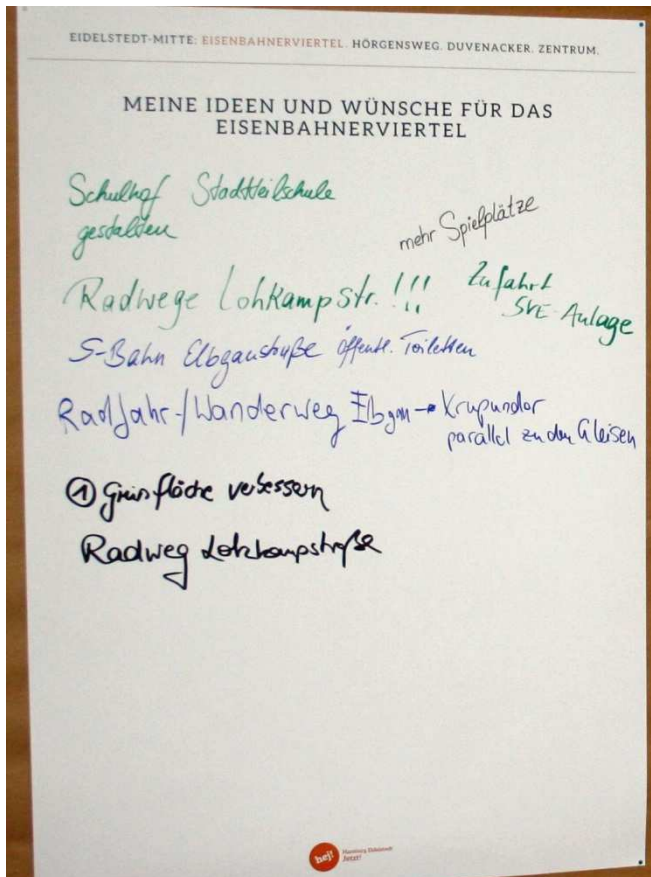 EIDELSTEDT-MITTE: EISENBAHNERVIERTEL. HÖRGENSWEG. DUVENACKER. ZENTRUM.
MEINE IDEEN UND WÜNSCHE FÜR DAS
EISENBAHNERVIERTEL
Schulhof Stadtteilschule
gestalten
mehr Spielplätze
Radwege Lohkampstr.!!!
Zufahrt
SVE-Anlage
S-Bahn Elbgaustraße öffentl. Toiletten
Radfahr-/Wanderweg Elbgau → Krupunder
parallel zu den Gleisen
① Grünfläche verbessern
Radweg Lohkampstraße
hej!
Hamburg Eidelstedt
Jetzt!